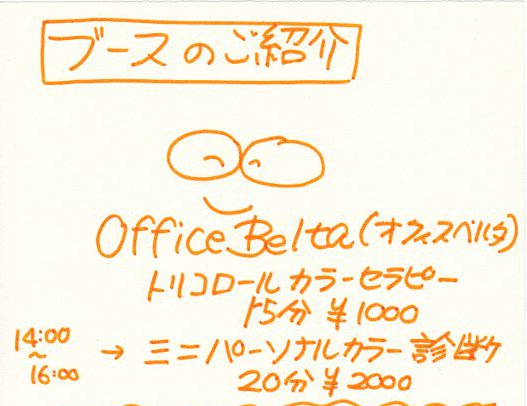 ブースのご紹介
Office Belta (オフィスベルタ)
トリコロールカラーセラピー
15分 ¥1000
14:00
~
16:00
→ ミニパーソナルカラー診断
20分 ¥2000